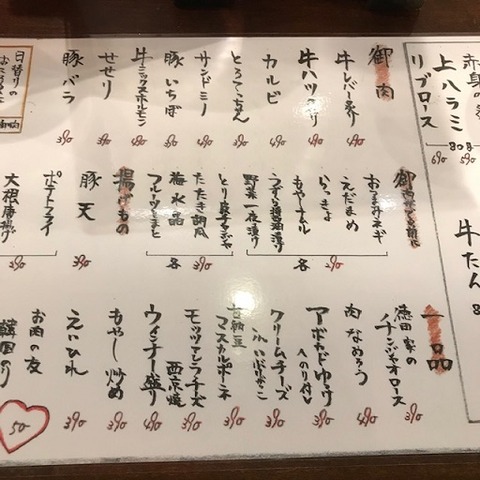 赤身の
上ハラミ
リブロース
80g
690
590
牛たん
御肉
牛レバー炙り
490
牛ハツ
490
カルビ
490
とろてっちゃん
390
サンドミー
390
豚いちぼ
390
牛ミックスホルモン
490
せせり
390
豚バラ
390
日替りの
おつまみネギ
えだまめ
らっきょ
もやしナムル
各290
うずら醤油漬け
野菜一夜漬け
たたき胡瓜
海水晶
フルーツとまと
各390
揚げもの
豚天
390
ポテトフライ
大根唐揚げ
390
一品
徳田家の
チンジャオロース
390
肉なめろう
490
アボカドゆっけ
のり付
390
クリームチーズ
390
マスカルポーネ
390
モッツアレラチーズ
西京焼
390
ウインナー盛り
490
もやし炒め
390
えいひれ
390
お肉の友
韓国のり
50-